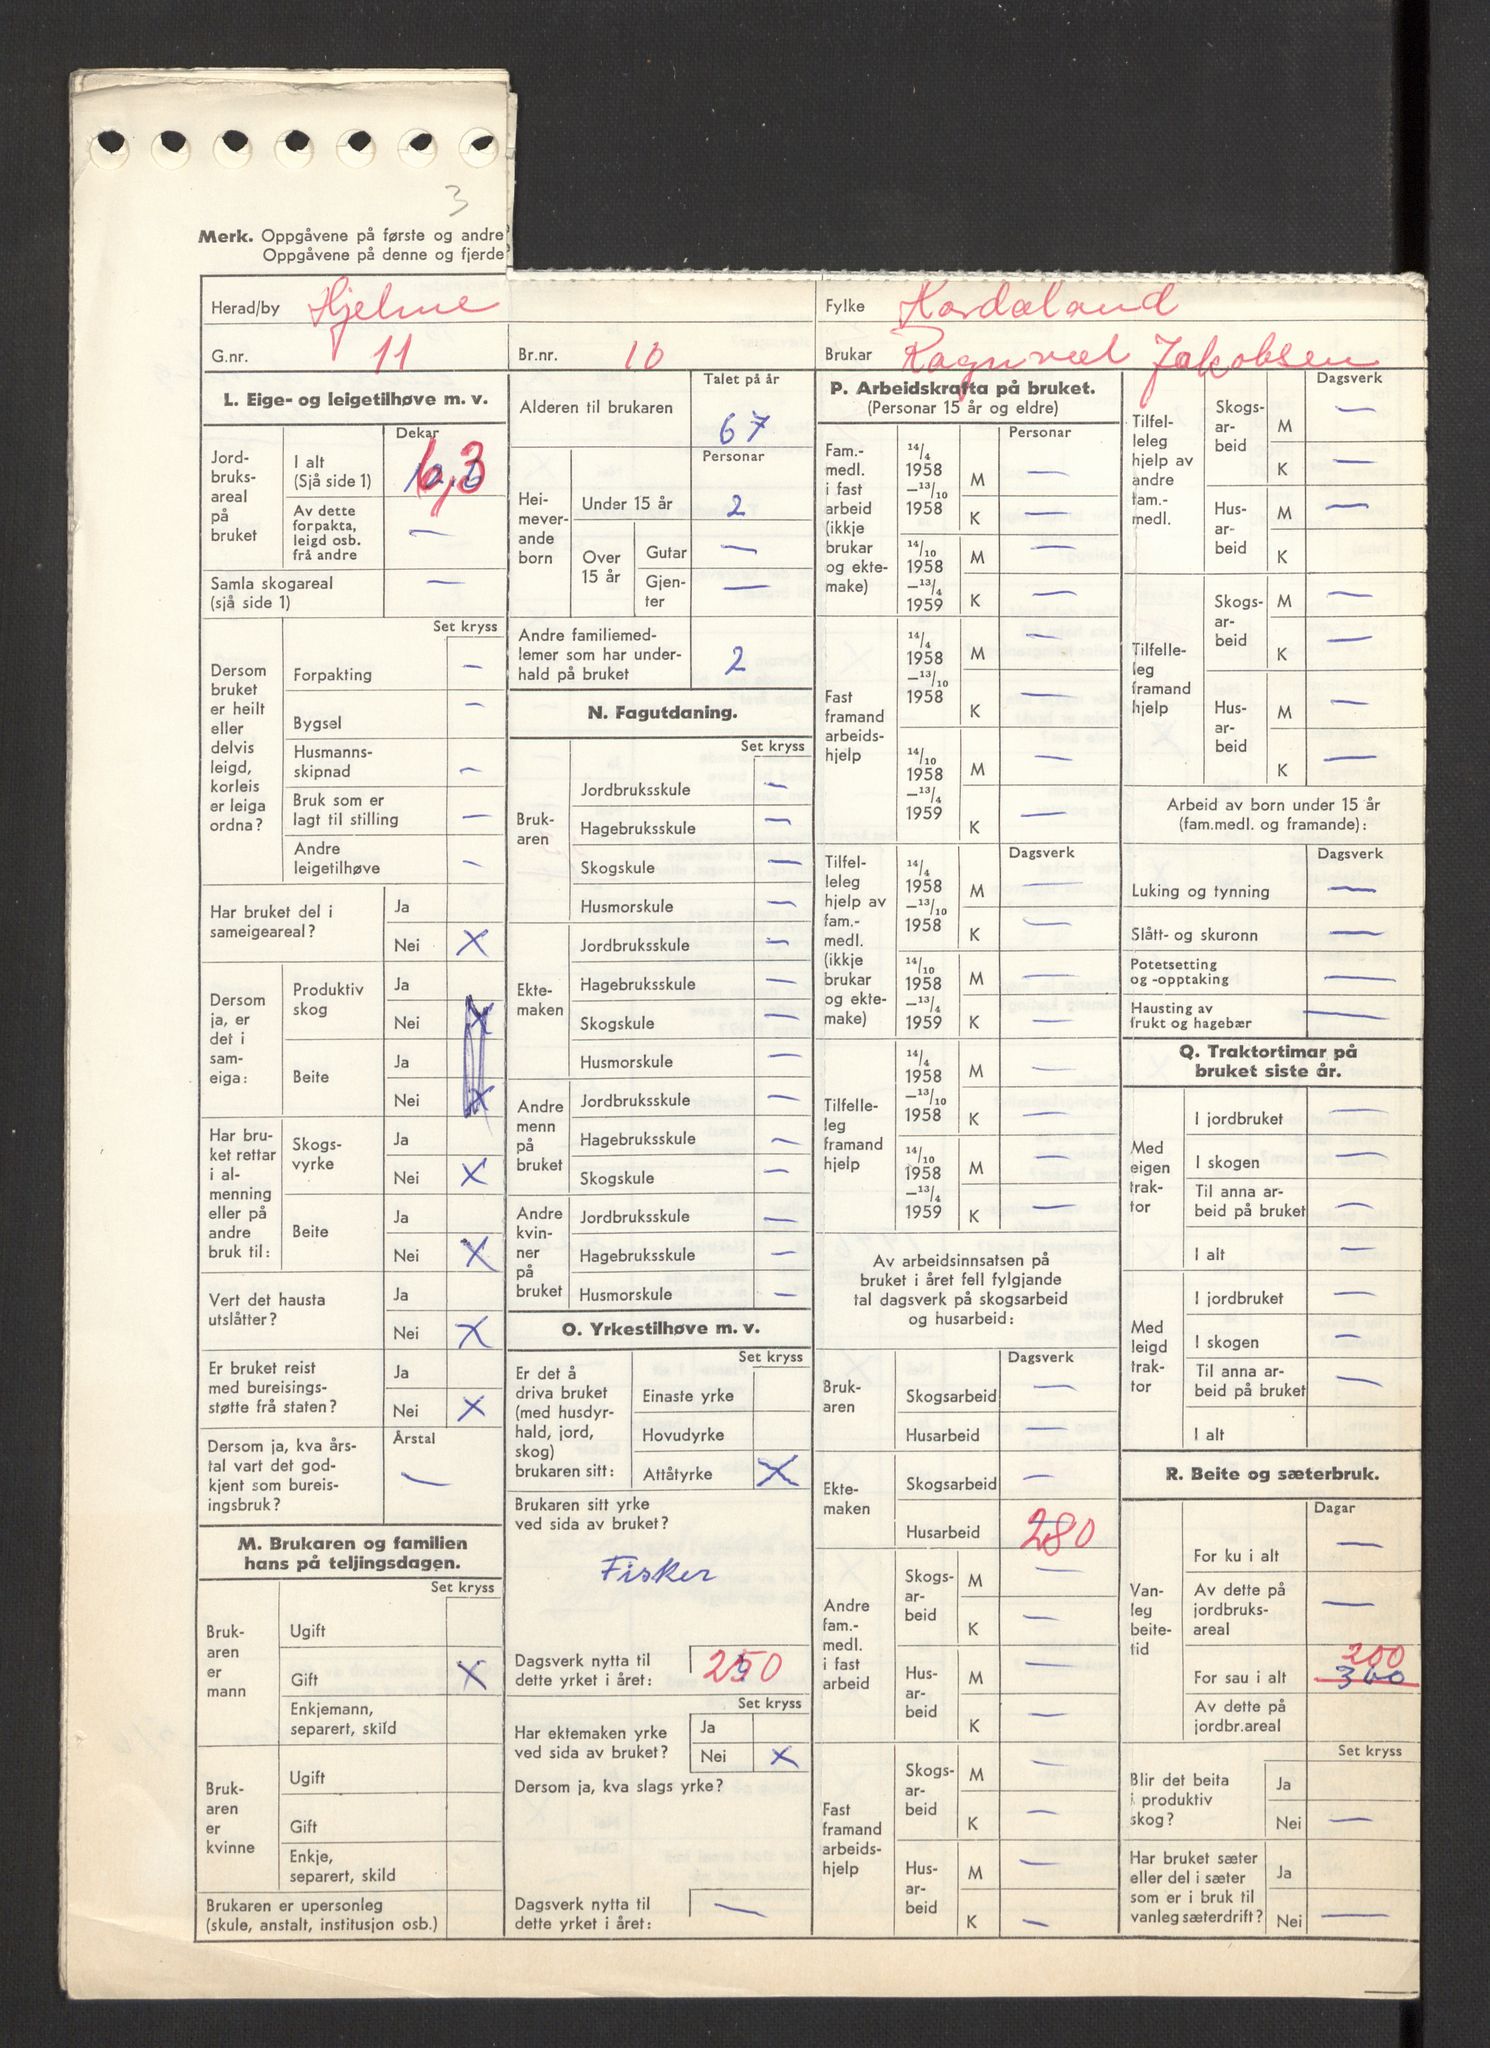 3
Merk. Oppgåvene på første og andre
Oppgåvene på denne og fjerde
Herad/by Hjelme
Fylke Hordaland
G.nr. 11
Br.nr. 10
Brukar Ragnval Jakobsen
L. Eige- og leigetilhøve m. v.
Dekar
Jord-
bruks-
areal
på
bruket
I alt
(Sjå side 1)
6,3
Av dette
forpakta,
leigd osb.
frå andre
—
Samla skogareal
(sjå side 1)
—
Set kryss
Dersom
bruket
er heilt
eller
delvis
leigd,
korleis
er leiga
ordna?
Forpakting —
Bygsel —
Husmanns-
skipnad —
Bruk som er
lagt til stilling —
Andre
leigetilhøve —
Har bruket del i
sameigeareal?
Ja
Nei X
Dersom
ja, er
det i
sam-
eiga:
Produktiv
skog
Ja
Nei X
Beite
Ja
Nei X
Har bru-
ket rettar
i al-
menning
eller på
andre
bruk til:
Skogs-
vyrke
Ja
Nei X
Beite
Ja
Nei X
Vert det hausta
utslåtter?
Ja
Nei X
Er bruket reist
med bureisings-
støtte frå staten?
Ja
Nei X
Dersom ja, kva års-
tal vart det god-
kjent som bureis-
ingsbruk?
Årstal
—
M. Brukaren og familien
hans på teljingsdagen.
Set kryss
Bruk-
aren
er
mann
Ugift
Gift X
Enkjemann,
separert, skild
Bruk-
aren
er
kvinne
Ugift
Gift
Enkje,
separert, skild
Brukaren er upersonleg
(skule, anstalt, institusjon osb.)
Talet på år
Alderen til brukaren 67
Personar
Hei-
mever-
ande
born
Under 15 år 2
Over
15 år
Gutar —
Gjen-
ter —
Andre familiemed-
lemer som har under-
hald på bruket 2
N. Fagutdaning.
Set kryss
Bruk-
aren
Jordbruksskule —
Hagebruksskule —
Skogskule —
Husmorskule —
Ekte-
maken
Jordbruksskule —
Hagebruksskule —
Skogskule —
Husmorskule —
Andre
menn
på
bruket
Jordbruksskule —
Hagebruksskule —
Skogskule —
Andre
kvin-
ner
på
bruket
Jordbruksskule —
Hagebruksskule —
Husmorskule —
O. Yrkestilhøve m. v.
Set kryss
Er det å
driva bruket
(med husdyr-
hald, jord,
skog)
brukaren sitt:
Einaste yrke
Hovudyrke
Attåtyrke X
Brukaren sitt yrke
ved sida av bruket?
Fisker
Dagsverk nytta til
dette yrket i året: 250
Set kryss
Har ektemaken yrke
ved sida av bruket?
Ja
Nei X
Dersom ja, kva slags yrke?
Dagsverk nytta til
dette yrket i året: —
P. Arbeidskrafta på bruket.
(Personar 15 år og eldre)
Personar
Fam.-
medl.
i fast
arbeid
(ikkje
brukar
og ekte-
make)
14/4
1958
—13/10
1958
M —
K —
14/10
1958
—13/4
1959
M —
K —
Fast
framand
arbeids-
hjelp
14/4
1958
—13/10
1958
M —
K —
14/10
1958
—13/4
1959
M —
K —
Dagsverk
Tilfel-
leleg
hjelp av
fam.-
medl.
(ikkje
brukar
og ekte-
make)
14/4
1958
—13/10
1958
M —
K —
14/10
1958
—13/4
1959
M —
K —
Tilfelle-
leg
framand
hjelp
14/4
1958
—13/10
1958
M —
K —
14/10
1958
—13/4
1959
M —
K —
Av arbeidsinnsatsen på
bruket i året fell fylgjande
tal dagsverk på skogsarbeid
og husarbeid:
Dagsverk
Bruk-
aren
Skogsarbeid —
Husarbeid —
Ekte-
maken
Skogsarbeid —
Husarbeid 280
Andre
fam.-
medl.
i fast
arbeid
Skogs-
ar-
beid
M —
K —
Hus-
ar-
beid
M —
K —
Fast
framand
arbeids-
hjelp
Skogs-
ar-
beid
M —
K —
Hus-
ar-
beid
M —
K —
Dagsverk
Tilfel-
leleg
hjelp av
andre
fam.-
medl.
Skogs-
ar-
beid
M —
K —
Hus-
ar-
beid
M —
K
Tilfelle-
leg
framand
hjelp
Skogs-
ar-
beid
M —
K —
Hus-
ar-
beid
M —
K —
Arbeid av born under 15 år
(fam.medl. og framande):
Dagsverk
Luking og tynning —
Slått- og skuronn —
Potetsetting
og -opptaking —
Hausting av
frukt og hagebær —
Q. Traktortimar på
bruket siste år.
Med
eigen
trak-
tor
I jordbruket —
I skogen —
Til anna ar-
beid på bruket —
I alt —
Med
leigd
trak-
tor
I jordbruket —
I skogen —
Til anna ar-
beid på bruket —
I alt
R. Beite og sæterbruk.
Dagar
Van-
leg
beite-
tid
For ku i alt —
Av dette på
jordbruks-
areal —
200
For sau i alt 300
Av dette på
jordbr.areal
Set kryss
Blir det beita
i produktiv
skog?
Ja
Nei —
Har bruket sæter
eller del i sæter
som er i bruk til
vanleg sæterdrift?
Ja
Nei —